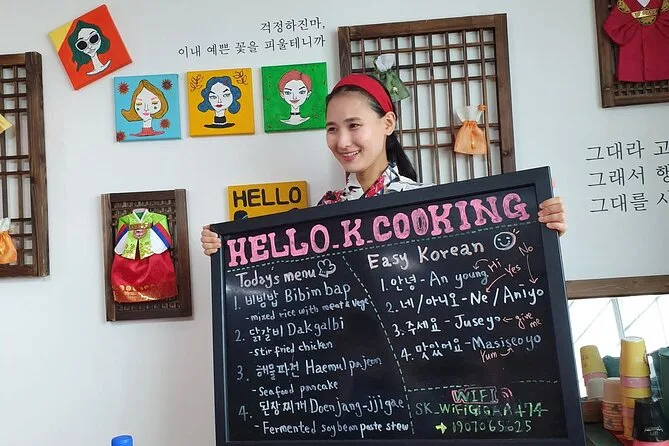 걱정하진마,
이내 예쁜 꽃을 피울테니까
HELLO
그대라 고
그래서 행
그대를 사
HELLO_K_COOKING
Today's menu
1. 비빔밥 Bibimbap
- mixed rice with meat & vege
2. 닭갈비 Dakgalbi
- stir fried chicken
3. 해물파전 Haemul pajeon
- Seafood pancake
4. 된장찌개 Doenjang-jjigae
- Fermented soybean paste stew
Easy Korean
1. 안녕 - An young Hi
Yes No
2. 네/아니오 - Ne / Aniyo
3. 주세요 - Juseyo give me
4. 맛있어요 - Masiseoyo
Yum
WIFI
1907065625